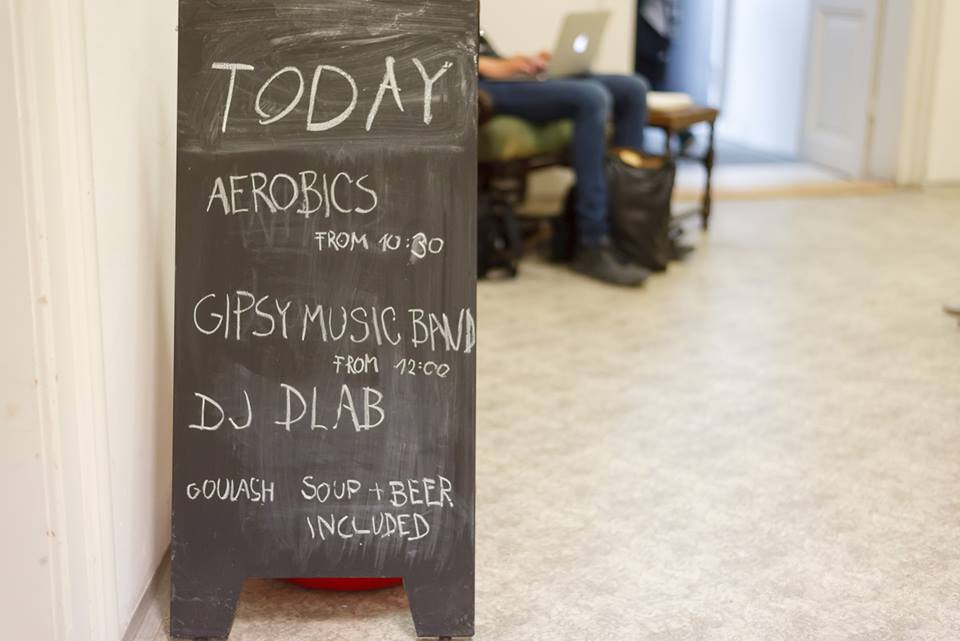 TODAY
AEROBICS
FROM 10:30
GIPSY MUSIC BAND
FROM 12:00
DJ DLAB
GOULASH SOUP + BEER
INCLUDED